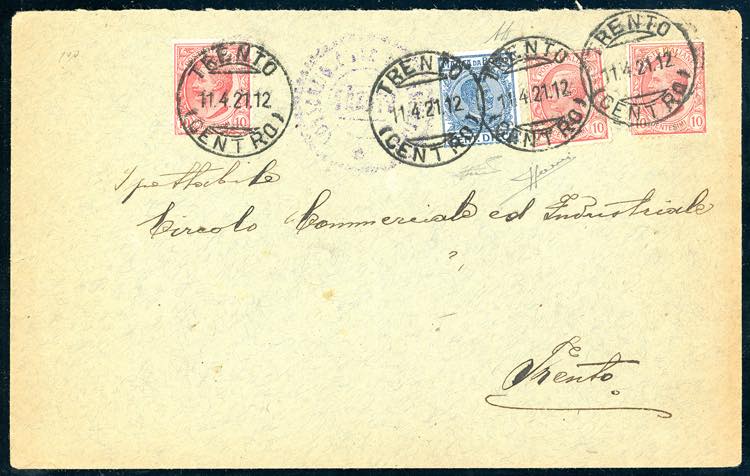 TRENTO
11.4.21.12
(CENTRO)
10
TRENTO
11.4.21.12
(CENTRO)
TRENTO
11.4.21.12
(CENTRO)
10
TRENTO
11.4.21.12
(CENTRO)
10
Spettabile
Circolo Commerciale ed Industriale
Trento